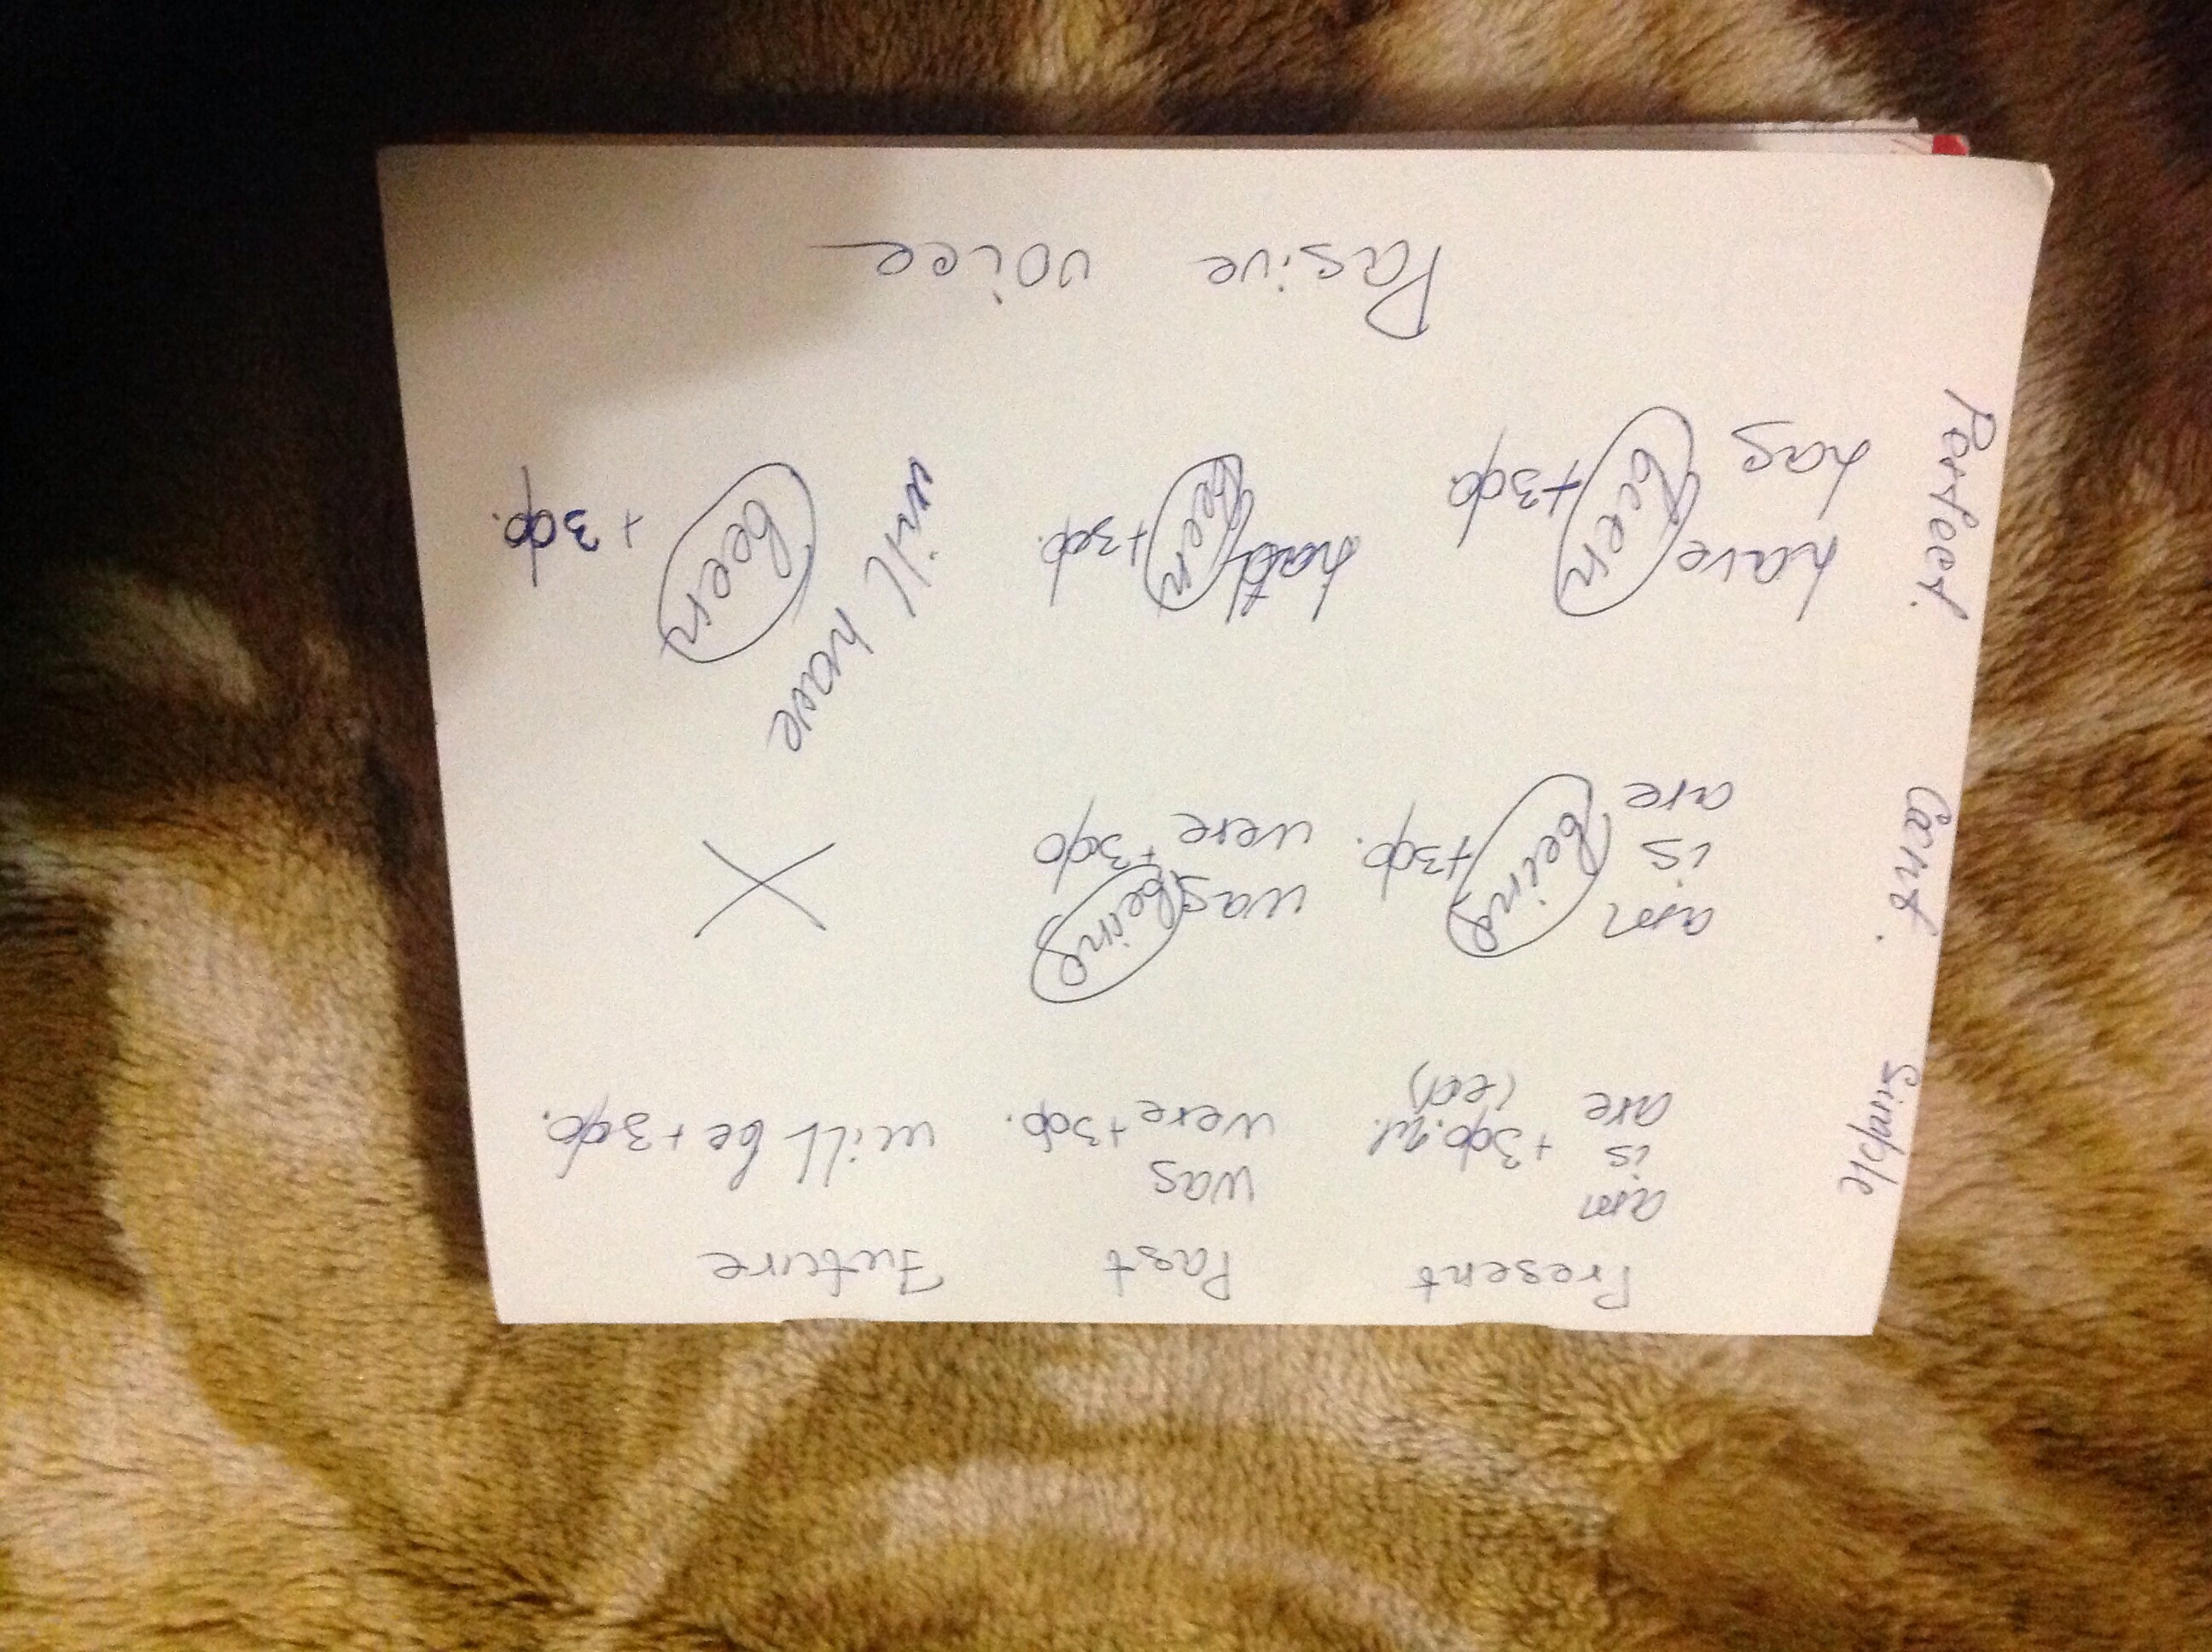 Present Past Future
Simple
am
is +3ф.гл.
are (ed)
was
were +3ф.
will be +3ф.
Cont.
am
is being +3ф.
are
was being
were +3ф
X
Perfect.
have been +3ф.
has
had been +3ф.
will have
been +3ф.
Pasive voice